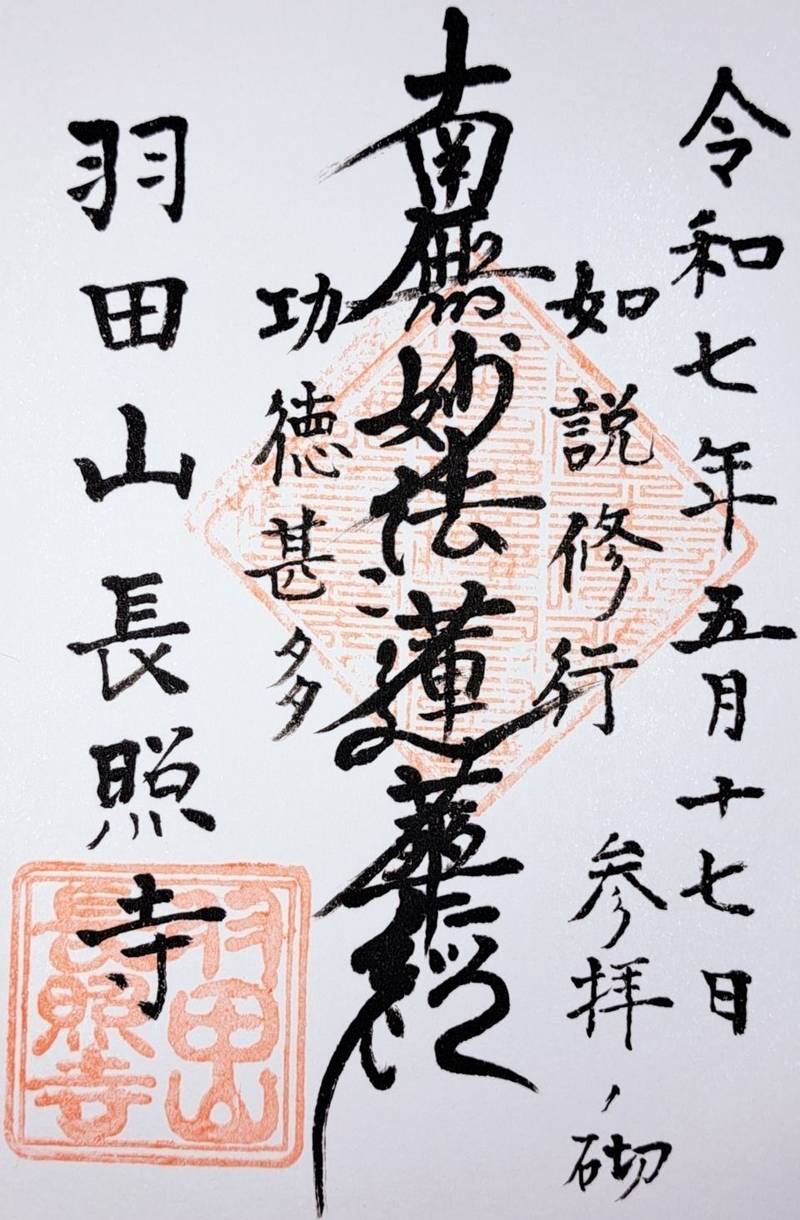 令和七年五月十七日
参拝ノ砌
如説修行
南無妙法蓮華経
功徳甚多
羽田山長照寺
羽田山
長照寺